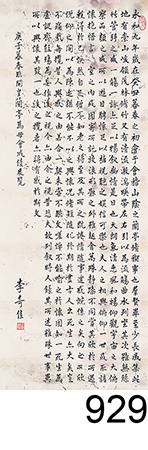 永和九年歲在癸丑暮春之初會于會稽山陰之蘭亭脩禊事也群賢畢至少長咸集此
地有崇山峻領茂林脩竹又有清流激湍映帶左右引以為流觴曲水列坐其次雖無絲
竹管弦之盛一觴一詠亦足以暢敘幽情是日也天朗氣清惠風和暢仰觀宇宙之大俯
察品類之盛所以遊目騁懷足以極視聽之娛信可樂也夫人之相與俯仰一世或取諸
懷抱悟言一室之內或因寄所託放浪形骸之外雖趣舍萬殊靜躁不同當其欣於所遇
暫得於己快然自足不知老之將至及其所之既惓情隨事遷感慨係之矣向之所欣俛
仰之間以為陳跡猶不能不以之興懷況脩短隨化終期於盡古人云死生亦大矣豈
不痛哉每覽昔人興感之由若合一契未嘗不臨文嗟悼不能喻之於懷固知一死生為
虛誕齊彭殤為妄作後之視今亦由今之視昔悲夫故列敘時人錄其所述雖世殊事異
所以興懷其致一也後之攬者亦將有感於斯文
庚子暮春臨開皇蘭亭為會展覽
李奇
929